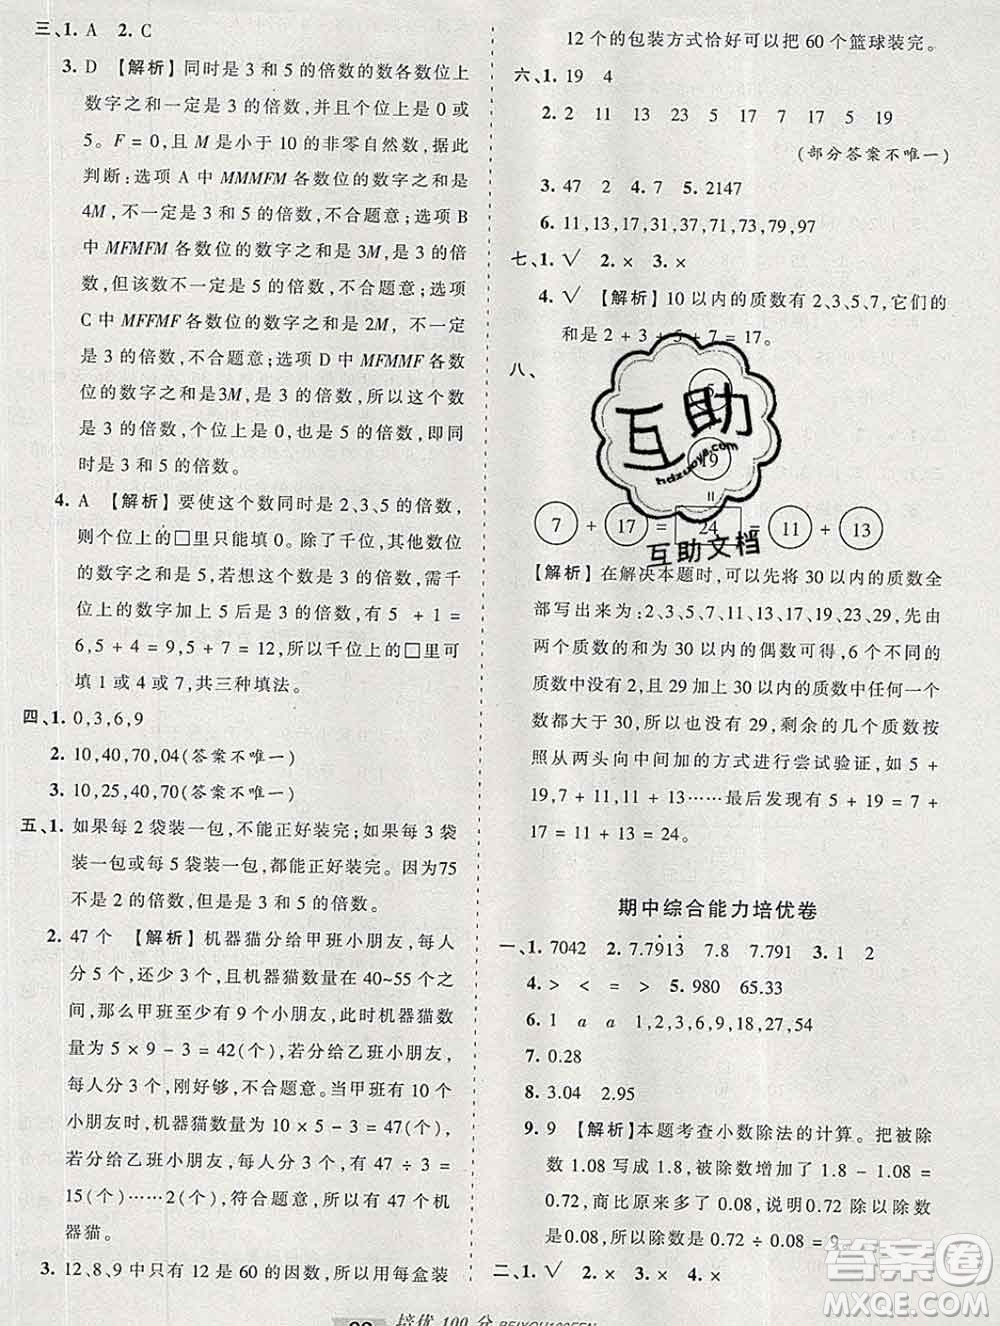 三、1. A  2. C
3. D 【解析】同时是 3 和 5 的倍数的数各数位上
数字之和一定是 3 的倍数，并且个位上是 0 或
5。F = 0，又因为 M 是小于 10 的非零自然数，据此
判断：选项 A 中 MMMFM 各数位的数字之和是
4M，不一定是 3 和 5 的倍数，不合题意；选项 B
中 MFMFM 各数位的数字之和是3M，是 3 的倍
数，但该数不一定是 5 的倍数，不合题意；选项
C 中 MFFMF 各数位的数字之和是2M，不一定
是 3 的倍数，不合题意；选项 D 中 MFMMF 各数
位的数字之和是3M，是 3 的倍数，个位上的数
字是 0，是 5 的倍数，所以该数一定是 3 的倍
数，也一定是 5 的倍数，即同
时是 3 和 5 的倍数。
4. A 【解析】要使这个数同时是 2、3、5 的倍数，
则个位上的□里只能填 0。除了千位，其他数位
的数字之和是 5，若想这个数是 3 的倍数，需千
位上的数字加上 5 后是 3 的倍数，有 5 + 1
= 6，5 + 4 = 9，5 + 7 = 12，所以千位上的□里可
填 1 或 4 或 7，共三种填法。
四、1. 0，3，6，9
2. 10，40，70，04（答案不唯一）
3. 10，25，40，70（答案不唯一）
五、1. 如果每 2 袋装一包，不能正好装完；如果每 3 袋
装一包或每 5 袋装一包，都能正好装完。因为75
不是 2 的倍数，是 3 和 5 的倍数。
2. 47 个 【解析】机器猫分给甲班小朋友，每人
分 5 个，还少 3 个，且机器猫的数量在 40~55 个
内，那么甲班至少有 9 个小朋友，此时机器猫数
量为 5 × 9 - 3 = 42（个），若分给乙班小朋友，
每人分 3 个，刚好够，不合题意。当甲班有 10 个
小朋友时，机器猫数量为 10 × 5 - 3 = 47（个），
若分给乙班小朋友，每人分 3 个，有 47 ÷ 3 =
15（个）……2（个），符合题意，所以有 47 个机
器猫。
3. 12、8、9 中只有 12 是 60 的因数，所以用每盒装
12 个的包装方式恰好可以把 60 个篮球装完。
六、1. 19  4
2. 2  11  13  23  5  17  7  17  5  19
（部分答案不唯一）
3. 47  2  4. 7  5. 2147
6. 11，13，17，31，37，71，73，79，97
七、1. √  2. ×  3. ×
4. √ 【解析】10 以内的质数有 2、3、5、7，它们的
和是 2 + 3 + 5 + 7 = 17。
八、
5
19
=
7 + 17 = 24 = 11 + 13
【解析】在解决本题时，可以先将 30 以内的质数全
部写出来为：2、3、5、7、11、13、17、19、23、29，先由
两个质数的和为 30 以内的偶数可知，6 个不同的
质数中没有 2，且 30 以内的质数中任何一个
数都大于 30，所以也没有 29，剩余的几个质数按
照从两头向中间加的方式进行尝试验证，如 5 +
19，7 + 17，11 + 13……最后发现有 5 + 19 = 7 +
17 = 11 + 13 = 24。
期中综合能力培优卷
一、1. 7042  2. 7.7̇91̇3̇  7.8  7.791  3. 1  2
4. >  <  =  >  5. 980  65.33
6. 1  a  a  1，2，3，6，9，18，27，54
7. 0.28
8. 3.04  2.95
9. 9 【解析】本题考查小数除法的计算。把被除
数 1.08 写成 1.8，被除数增加了 1.8 - 1.08 =
0.72，商比原来多了 0.08，说明0.72 除以除数
是0.08，所以除数是 0.72 ÷ 0.08 = 9。
二、1. √  2. ×  3. ×  4. ×
互助
hdzuoye.com
互助文档
答案圈
MXQE.COM
培优 100 分